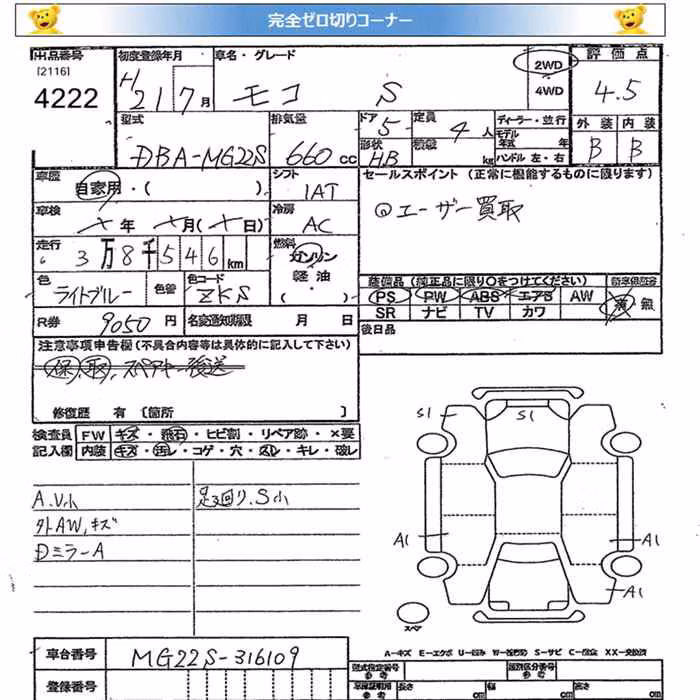 完全ゼロ切りコーナー
出品番号 初度登録年月 車名・グレード 2WD 評価点
[2116] 4222 H 21 7月 モコ S 4WD 4.5
型式 排気量 ドア 定員 ディーラー・並行 外装 内装
DBA-MG22S 660 cc 5 4人 モデル年式 年 B B
形状 HB 積載 kg ハンドル 左・右
車歴 自家用・( ) シフト IAT セールスポイント (正常に機能するものに限ります)
車検 年 月( 日) 冷房 AC エーザー買取
走行 3万8千546km 燃料 ガソリン
軽油・( )
色 ライトブルー 色替 色コード ZKS 装備品(純正品に限り○をつけてください)
PS PW ABS エアB AW 無
R券 9050円 名変通知期限 月 日 SR ナビ TV カワ
後日品
注意事項申告欄(不具合内容等は具体的に記入して下さい)
保.取.スペアキー後送
修復歴 有 [箇所 ]
検査員 FW キズ・飛石・ヒビ割・リペア跡・×要
記入欄 内装 キズ・汚レ・コゲ・穴・スレ・キレ・破レ
A.V小 足廻り.S小
外AW,キズ
Dミラ-A
S1 S1
A1 A1
A1
スペア
車台番号 MG22S-316109
A-キズ E-エクボ U-凹み W-補修跡 S-サビ C-腐食 XX-交換済
登録番号 型式指定番号 参考 類別区分番号 参考
長さ cm 幅 cm 高さ cm